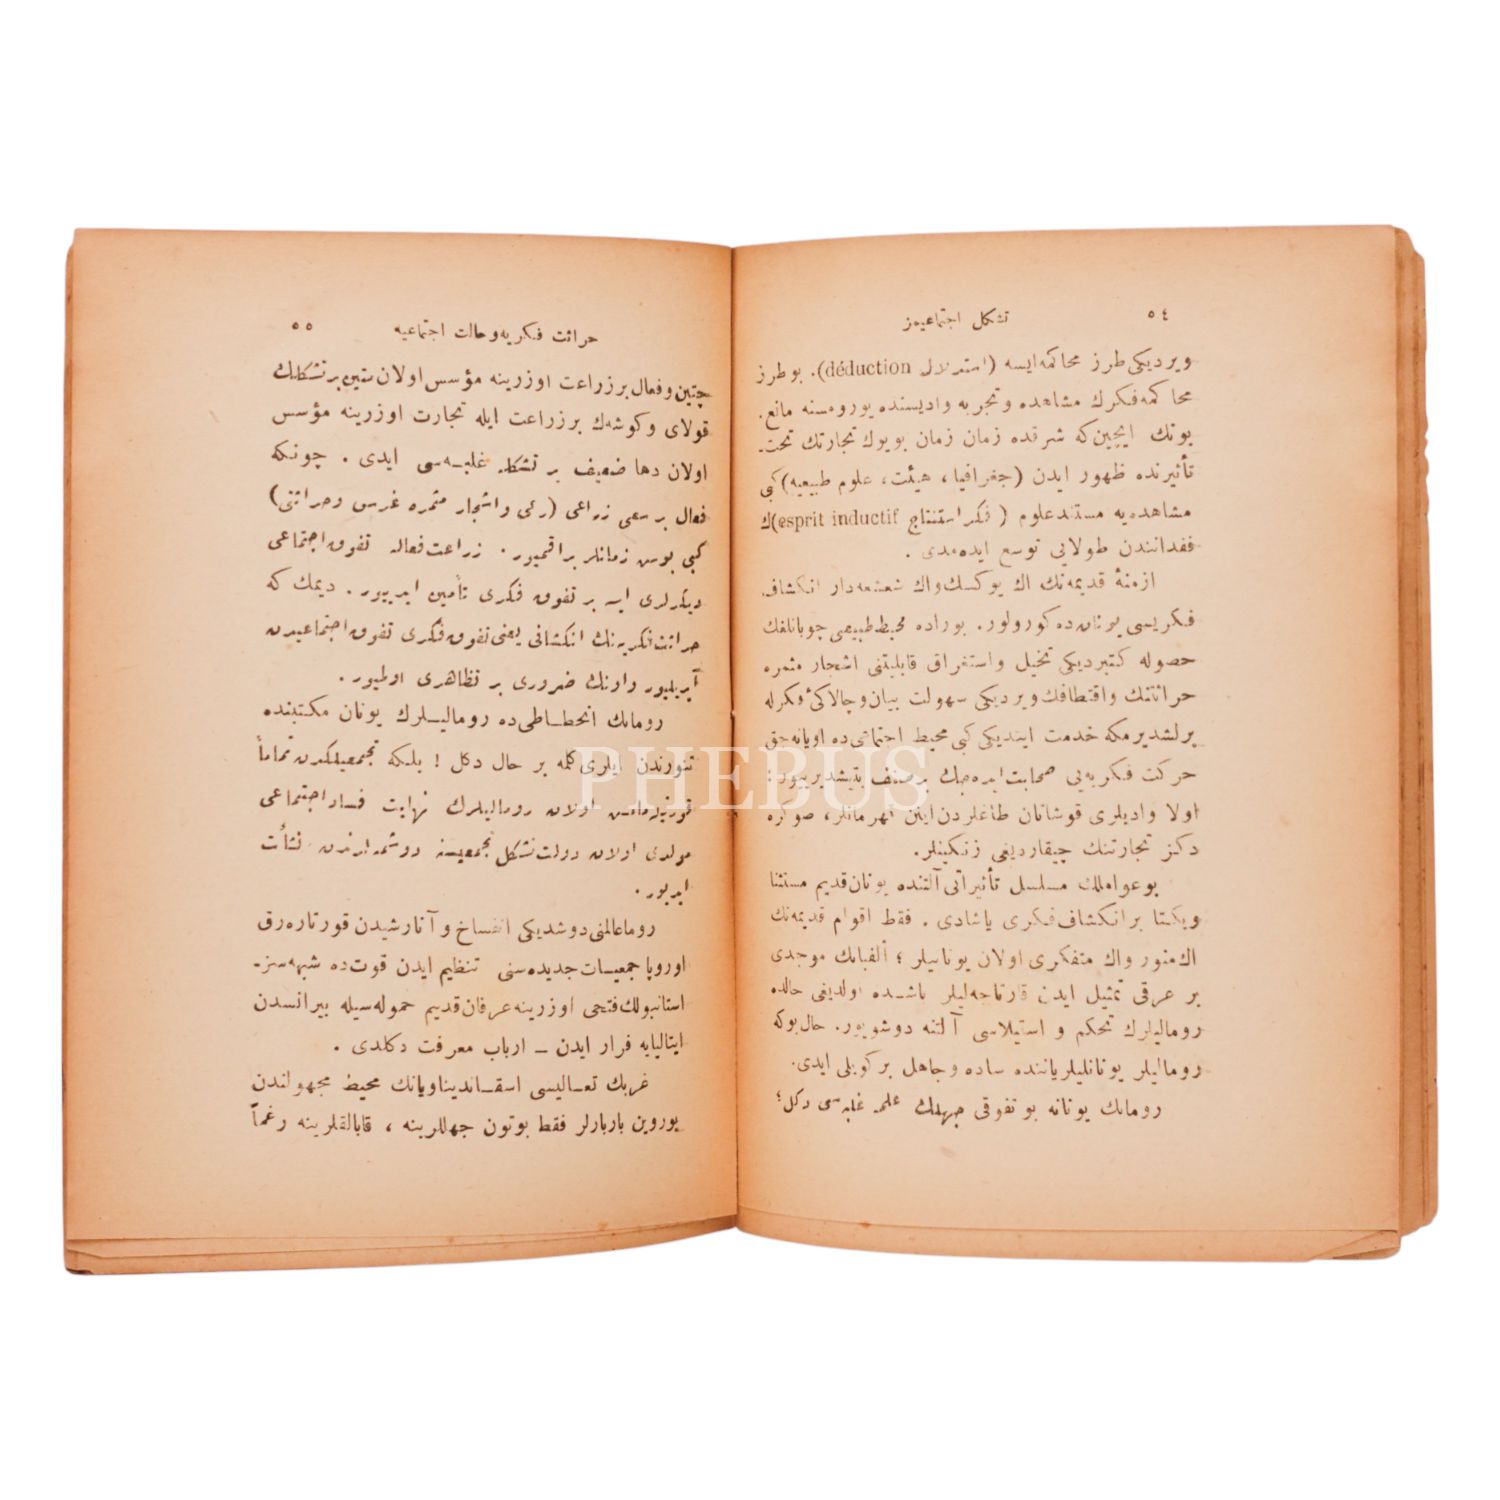 ٥٤
تشكل اجتماعيمز
ويرديكى طرز محاكمه ايسه (استدلال déduction). بو طرز
محاكمه فكرك مشاهده وتجربه واديسنده يورومسنه مانع.
بونك ايچين كه شرقده زمان زمان بويوك تجارتك تحت
تأثيرنده ظهور ايدن (جغرافيا، هيئت، علوم طبيعيه) كبى
مشاهده يه مستند علوم (فكر استنتاج esprit inductif)ك
فقدانندن طولايى توسع ايده مدى.
ازمنهٔ قديمه نك اك يوكسك واك شعشعه دار انكشاف
فكريسى يونان ده كورولور. بوراده محيط طبيعى چوبانلغك
حصوله كتيرديكى تخيل واستغراق قابليتنى اشجار مثمره
حراثتنك واقتطافك ويرديكى سهولت بيان وچالاكئ فكرله
برلشديرمكه خدمت ايتديكى كبى محيط اجتماعى ده اويانه جق
حركت فكريه يى صحابت ايده جك بر صنف يتيشديرييور:
اولا واديلرى قوشاتان طاغلردن اينن قهرمانلر، صوكره
دكز تجارتنك چيقارديغى زنكينلر.
بو عواملك مسلسل تأثيراتى آلتنده يونان قديم مستثنا
ويكتا بر انكشاف فكرى ياشادى. فقط اقوام قديمه نك
اك منور واك متفكرى اولان يونانيلر؛ ألفبانك موجدى
بر عرقى تمثيل ايدن قارتاجه ليلر باشده اولديغى حالده
روماليلرك تحكم و استيلاسى آلتنه دوشويور. حال بوكه
روماليلر يونانليلر ياننده ساده وجاهل بر كويلى ايدى.
رومانك يونانه بو تفوقى جهلك علمه غلبه سى دكل؛
حراثت فكريه و حالت اجتماعيه
٥٥
چتين وفعال بر زراعت اوزرينه مؤسس اولان متين بر تشكلك
قولاى وكوشه ك بر زراعت ايله تجارت اوزرينه مؤسس
اولان دها ضعيف بر تشكله غلبه سى ايدى. چونكه
فعال بر سعى زراعى (رعى واشجار مثمره غرس وحراثتى)
كبى بوس زمانلر براقميور. زراعت فعاله تفوق اجتماعى
ديكرلرى ايسه بر تفوق فكرى تأمين ايدييور. ديمك كه
حراثت فكريه نك انكشافى يعنى تفوق فكرى تفوق اجتماعيدن
آيريلييور واونك ضرورى بر تظاهرى اولميور.
رومانك انحطاطى ده روماليلرك يونان مكتبنده
تنورندن ايلرى كلمه بر حال دكل! بلكه تجمعيلكدن تماماً
قورتيله مامش اولان روماليلرك نهايت فساد اجتماعى
مولدى اولان دولت تشكل تجمعيسنه دوشمه لرندن نشأت
ايدييور.
روما عالمنى دوشديكى انفساخ و آنارشيدن قورتاره رق
اوروپا جمعيات جديده سنى تنظيم ايدن قوت ده شبهه سز-
استانبولك فتحى اوزرينه عرفان قديم حموله سيله بيزانسدن
ايتاليايه فرار ايدن - ارباب معرفت دكلدى.
غربك تعاليسى اسقانديناويانك محيط مجهولندن
يوروين باربارلر فقط بوتون جهللرينه، قابالقلرينه رغماً
PHEBUS